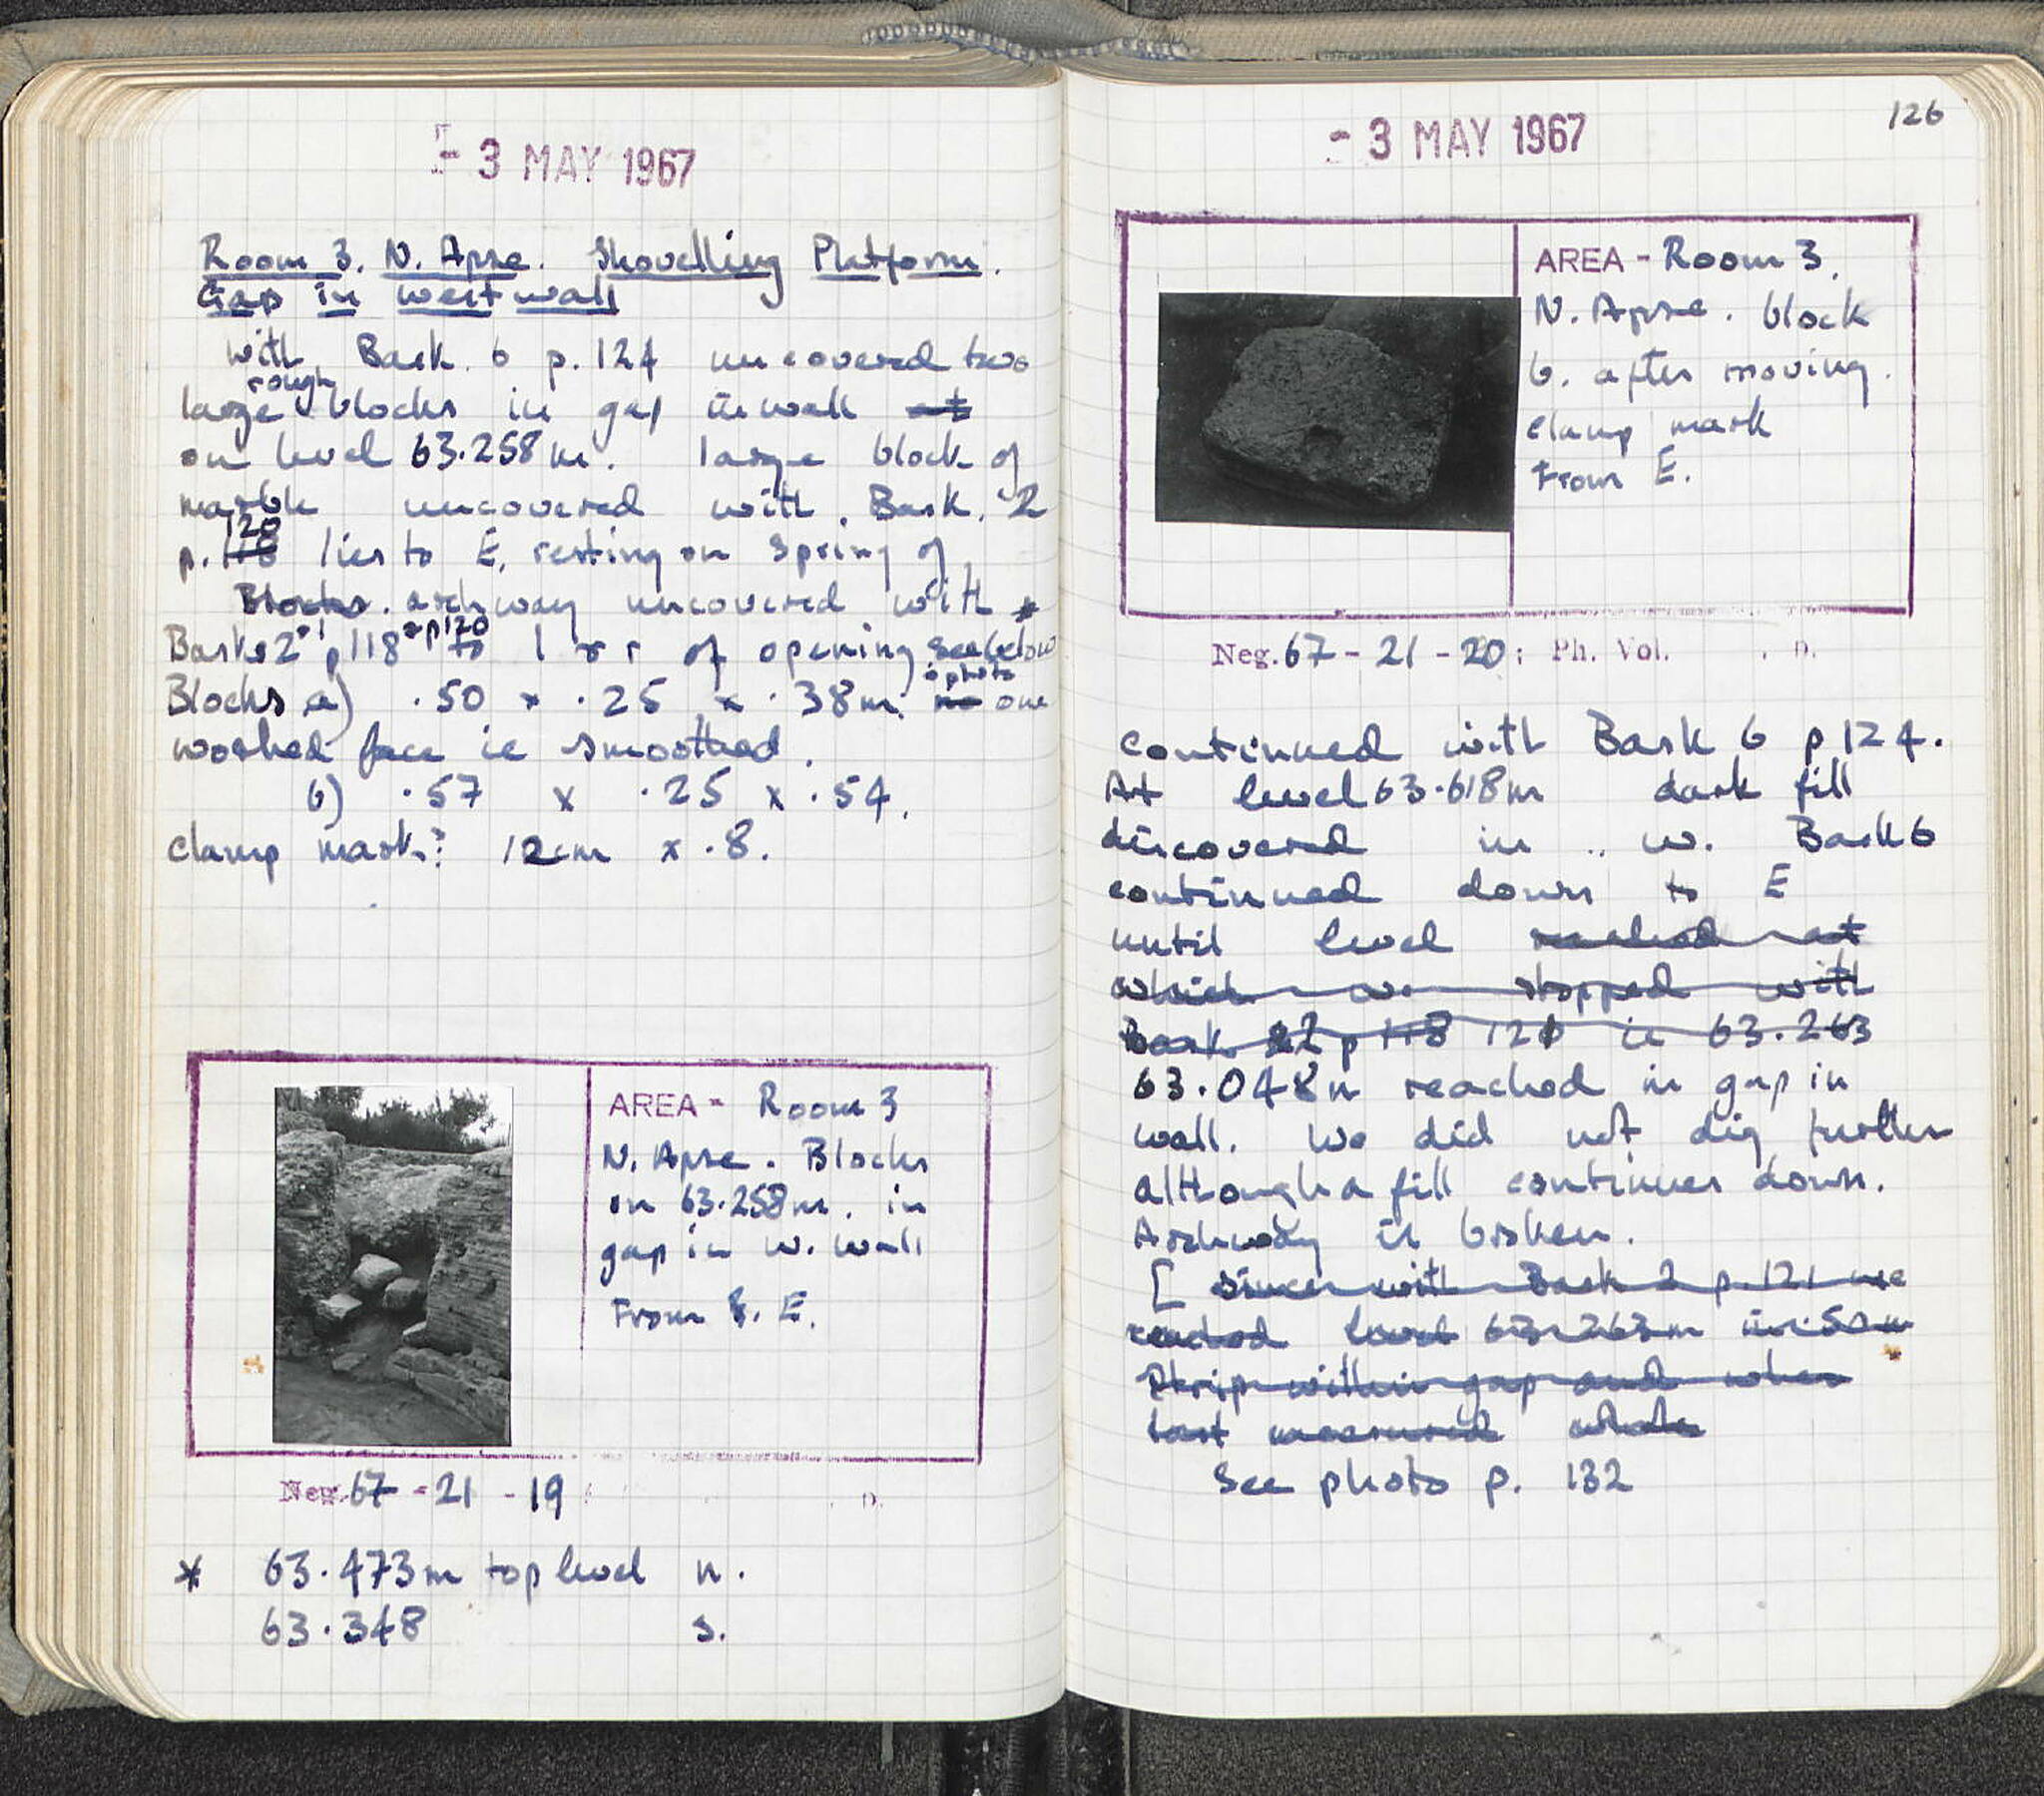 - 3 MAY 1967
Room 3. N. Apse. Shovelling Platform.
Gap in west wall
With Bask. 6 p. 124 uncovered two
rough
large blocks in gap in wall at
on level 63.258m. large block of
marble uncovered with Bask. 2
120
p. 118 lies to E, resting on spring of
Blocks. archway uncovered with *
Bask 2 p118 p120 to l or r of opening see below
photo
Blocks a) .50 x .25 x .38m. no one
worked face ie smoothed.
b) .57 x .25 x .54.
clamp mark? 12cm x .8.
AREA - Room 3
N. Apse. Blocks
on 63.258m. in
gap in W. wall
From E.
Neg. 67 - 21 - 19 p.
* 63.473m top level n.
63.348 s.
126
- 3 MAY 1967
AREA - Room 3.
N. Apse. block
b. after moving.
clamp mark
From E.
Neg. 67 - 21 - 20; Ph. Vol. , p.
continued with Bask 6 p 124.
At level 63.618m dark fill
discovered in .. w. Bask 6
continued down to E
until level reached at
which we stopped with
Bask 2 p 118 120 ie 63.263
63.048m reached in gap in
wall. We did not dig further
although a fill continues down.
Archway is broken.
[ since with Bask 2 p. 121 we
reached level 63.263m in .50m
strip within gap and when
last measured whole
See photo p. 132